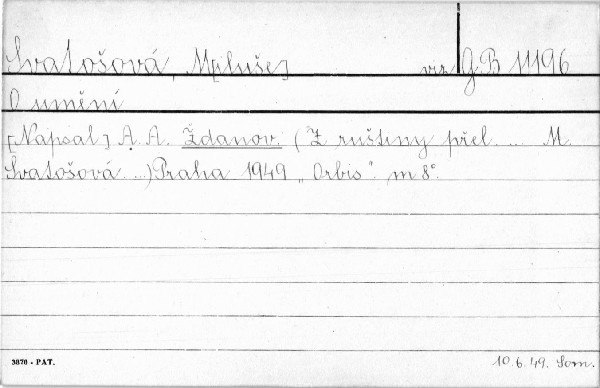 Svatošová, M[iluše] viz GB 11196
O umění
[Napsal] A. A. Ždanov. (Z ruštiny přel. ... M.
Svatošová ...) Praha 1949 „Orbis". m 8°.
3876 - PAT. 10.6.49. Som.